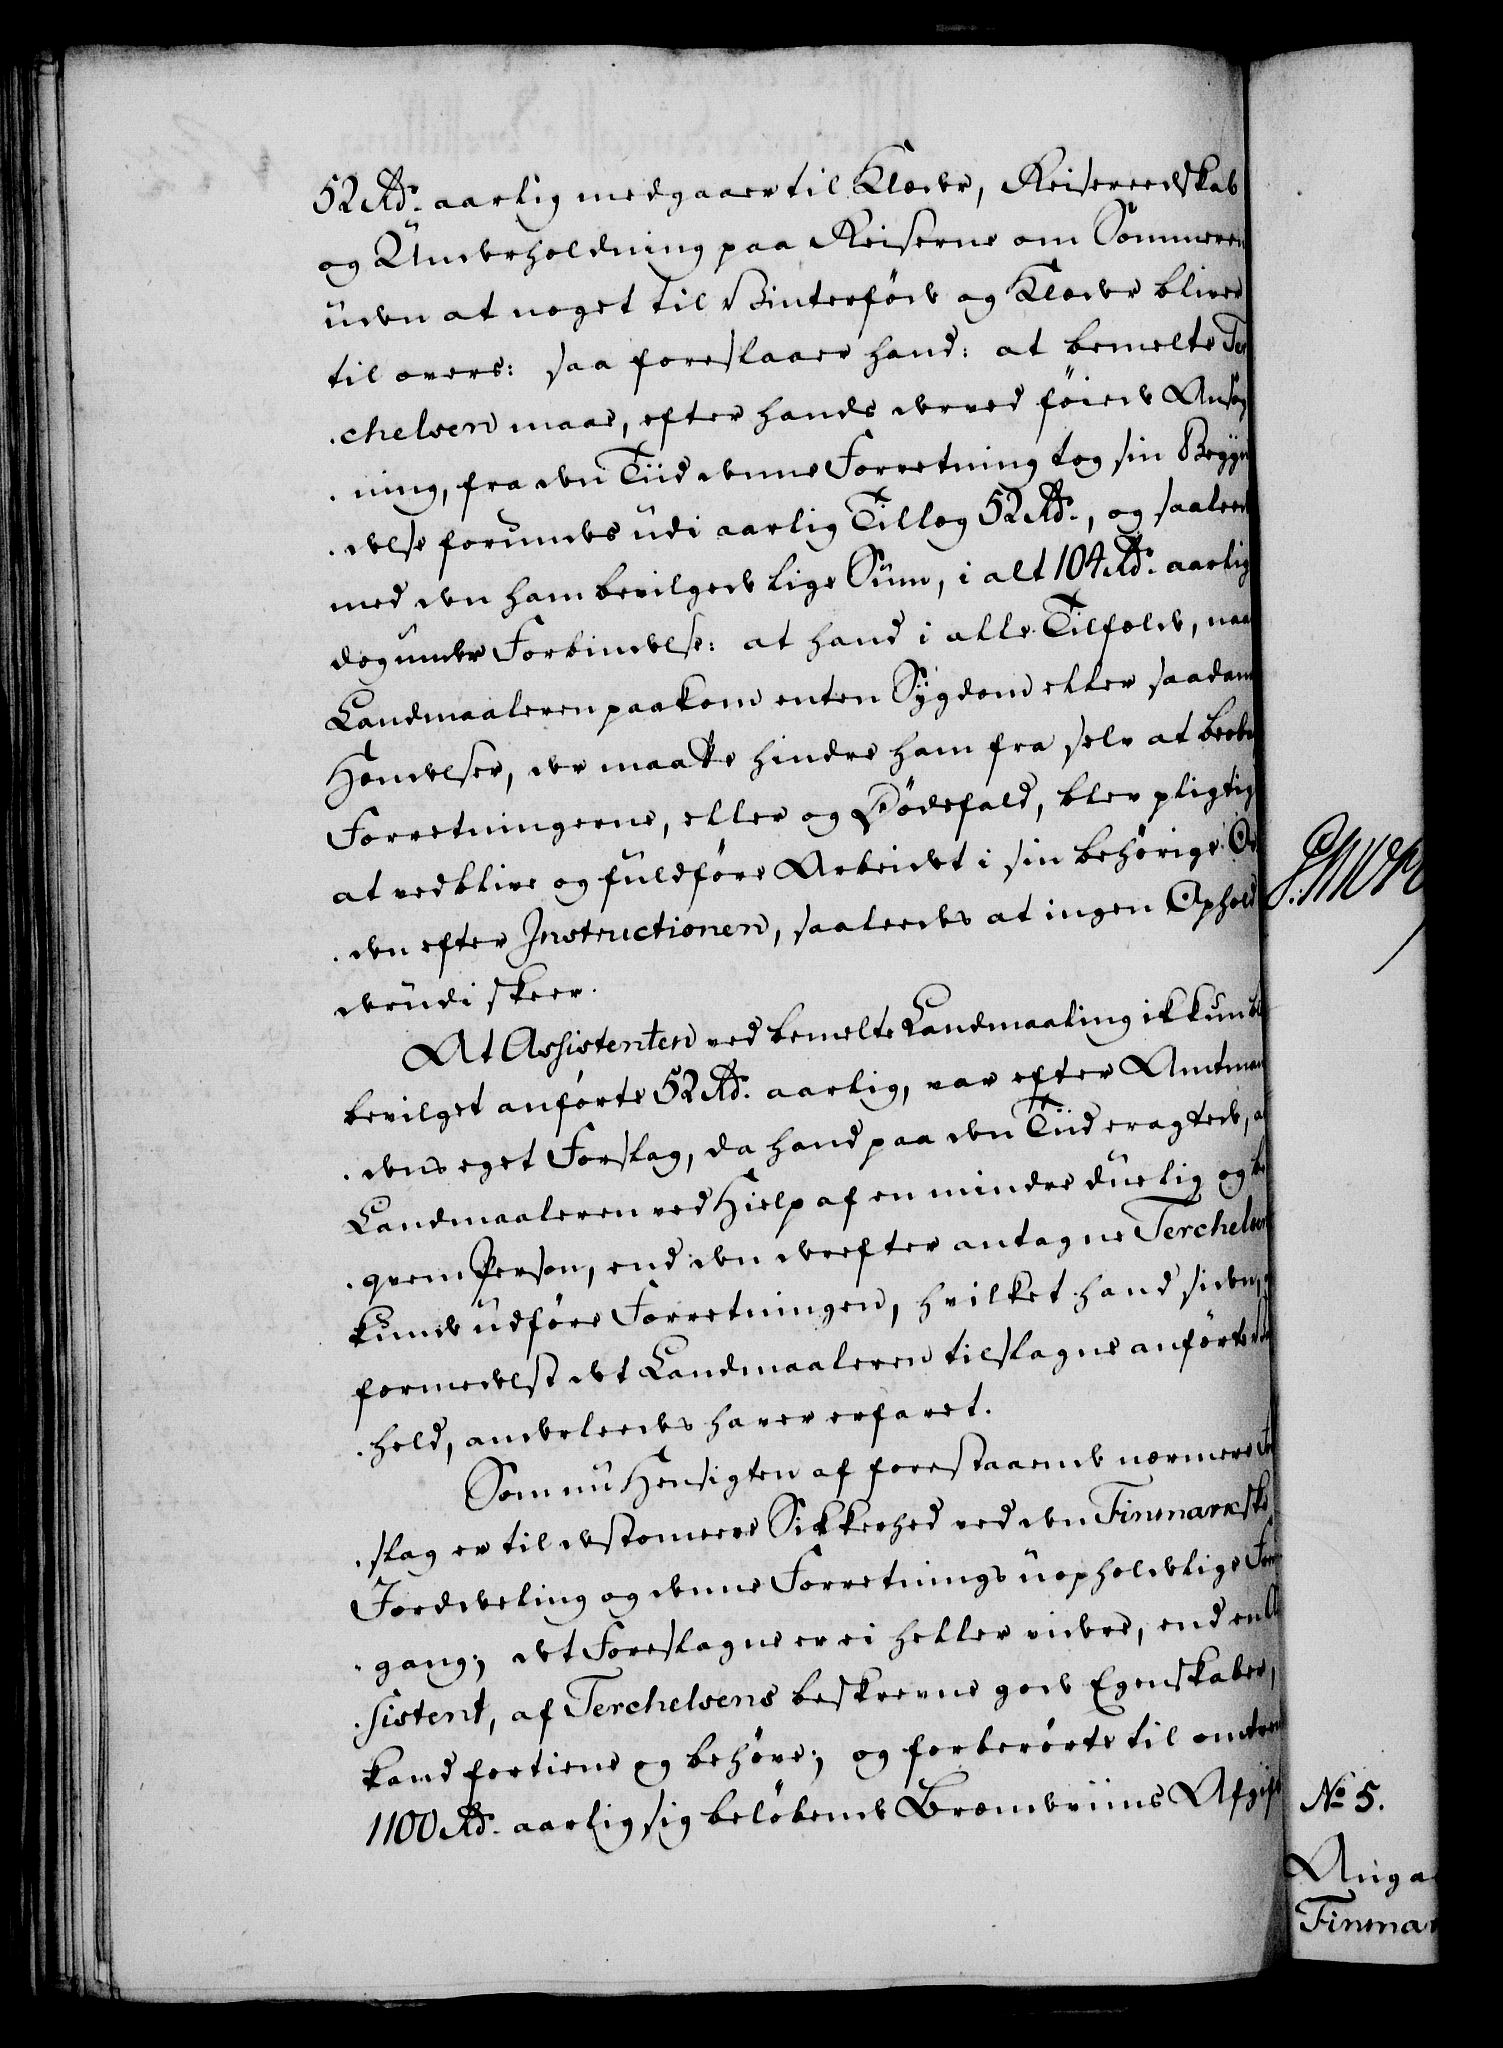 52 Rd. aarlig medgaaer til Klæder, Reiseredskab
og Underholdning paa Reiserne om Sommeren
uden at noget til Vinterføde og Klæder bliver
til overs: saa foreslaaer hand: at bemelte Ter
chelsen maae, efter hands derved føiede Ansøg
ning, fra den Tiid denne Forretning tog sin Begyn
delse forundes udi aarlig Tillæg 52 Rd., og saaleed
med den ham bevilgede lige Sum, i alt 104 Rd. aarlig
dog under Forbindelse: at hand i alle Tilfælde, naa
Landmaaleren paakom enten Sÿgdom eller saadan
Hændelser, der maatte hindre ham fra selv at
Forretningerne, eller og Dødsfald, blev pligtig
at vedblive og fuldføre Arbeidet i sin behørige Or
den efter Instructionen, saaleedes at ingen Ophold
derudi skeer.
At Assistenten ved bemelte Landmaaling ikkun bl
bevilget anførte 52 Rd. aarlig, var efter Amtman
dens eget Forslag, da hand paa den Tiid eragtede, a
Landmaaleren ved Hielp af en mindre duelig og be
qvem Person, end den derefter antagne Terchelsen
kunde udføre Forretningen, hvilket hand siden,
formedelst det Landmaaleren tilslagne anførte
held, anderleedes haver erfaret.
Som nu Hensigten af forestaaende nærmere For
slag er til destomeere Sikkerhed ved den Finmarkske
Jorddeeling og denne Forretnings uopholdelige Frem
gang; det Foreslagne er ei heller videre, end en As
sistent, af Terchelsens beskrevne gode Egenskaber,
kand fortiene og behøve; og forberørte til omtrent
1100 Rd. aarlig sig beløbende Brændeviins Afgift
No 5.
Ang a
Finmar